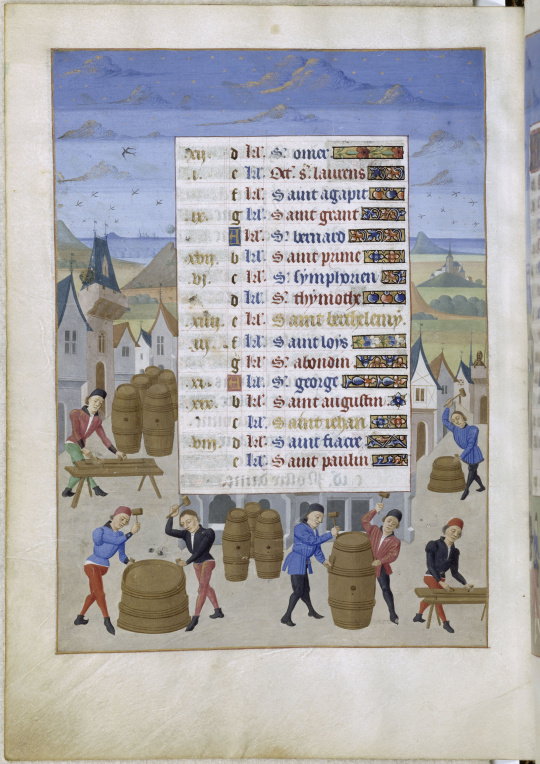 xij d kl'. St omer
v. e kl'. Oct. s. laurens
f kl'. Saint agapit
ix. g kl'. Saint grant
A kl'. St bernard
xvij. b kl'. Saint prime
vj. c kl'. St symphorien
d kl'. St thymothe
xiiij. e kl'. Saint berthelemy.
iij. f kl'. Saint loys
g kl'. St abondin
xj. A kl'. St george
xix. b kl'. Saint augustin
c kl'. Saint iehan
viij d kl'. Saint fiacre
e kl'. Saint paulin